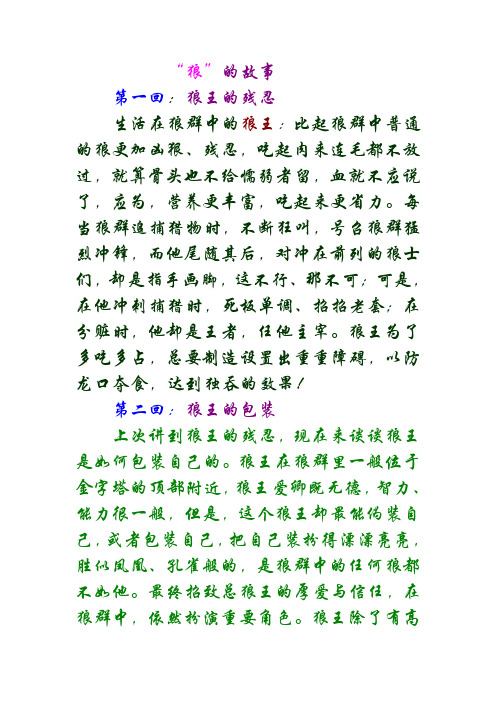 “狼”的故事
第一回：狼王的残忍
生活在狼群中的狼王：比起狼群中普通
的狼更加凶狠、残忍，吃起肉来连毛都不放
过，就算骨头也不给懦弱者留，血就不应说
了，应为，营养更丰富，吃起来更省力。每
当狼群追捕猎物时，不断狂叫，号召狼群猛
烈冲锋，而他尾随其后，对冲在前列的狼士
们，却是指手画脚，这不行、那不可；可是，
在他冲刺捕猎时，死板单调、招招老套；在
分赃时，他却是王者，任他主宰。狼王为了
多吃多占，总要制造设置出重重障碍，以防
龙口夺食，达到独吞的效果！
第二回：狼王的包装
上次讲到狼王的残忍，现在来谈谈狼王
是如何包装自己的。狼王在狼群里一般位于
金字塔的顶部附近，狼王爱卿既无德，智力、
能力很一般，但是，这个狼王却最能伪装自
己，或者包装自己，把自己装扮得漂漂亮亮，
胜似凤凰、孔雀般的，是狼群中的任何狼都
不如他。最终招致总狼王的厚爱与信任，在
狼群中，依然扮演重要角色。狼王除了有高